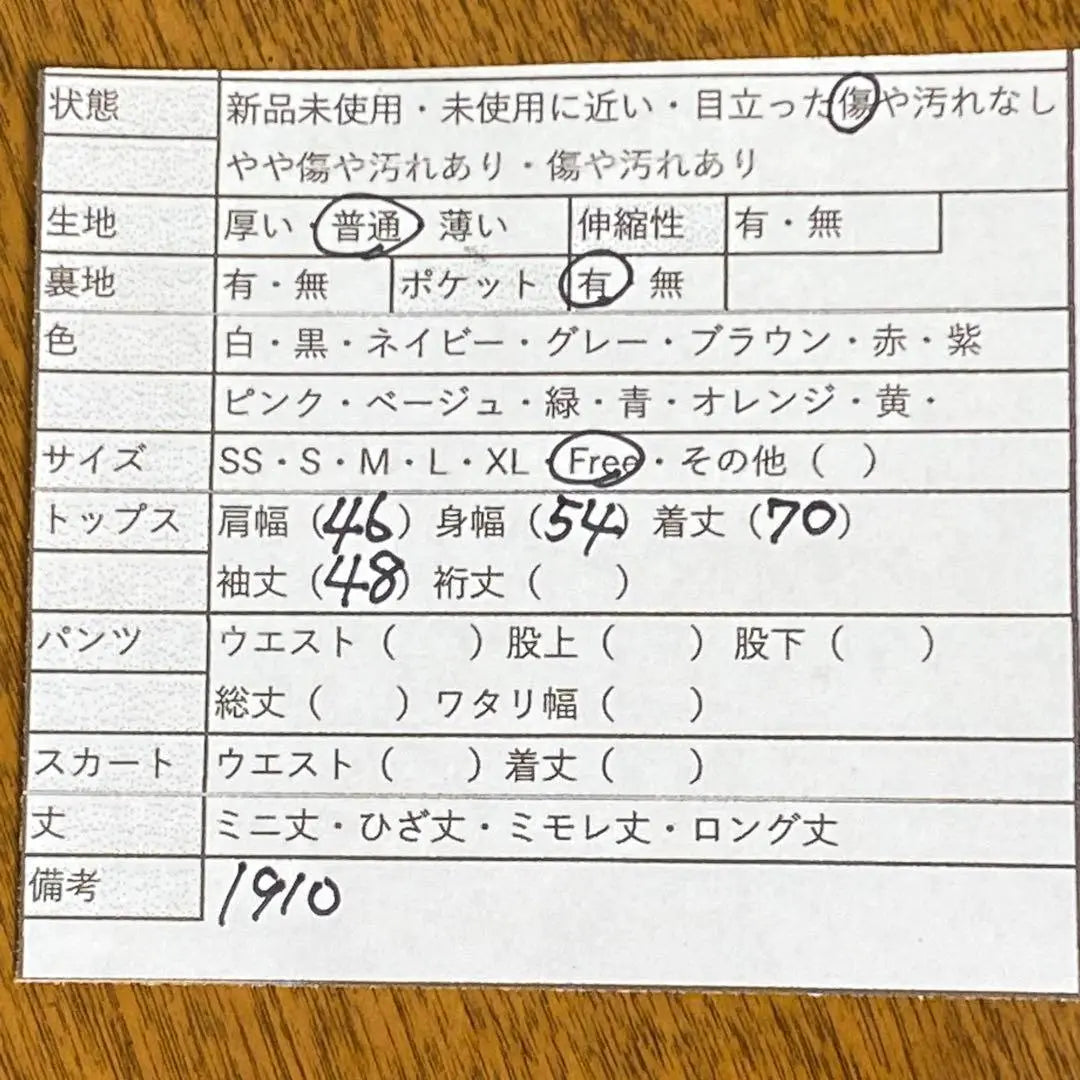 状態 新品未使用・未使用に近い・目立った傷や汚れなし
やや傷や汚れあり・傷や汚れあり
生地 厚い・普通 薄い 伸縮性 有・無
裏地 有・無 ポケット 有 無
色 白・黒・ネイビー・グレー・ブラウン・赤・紫
ピンク・ベージュ・緑・青・オレンジ・黄・
サイズ SS・S・M・L・XL・Free・その他（ ）
トップス 肩幅（46）身幅（54）着丈（70）
袖丈（48）裄丈（ ）
パンツ ウエスト（ ）股上（ ）股下（ ）
総丈（ ）ワタリ幅（ ）
スカート ウエスト（ ）着丈（ ）
丈 ミニ丈・ひざ丈・ミモレ丈・ロング丈
備考 1910